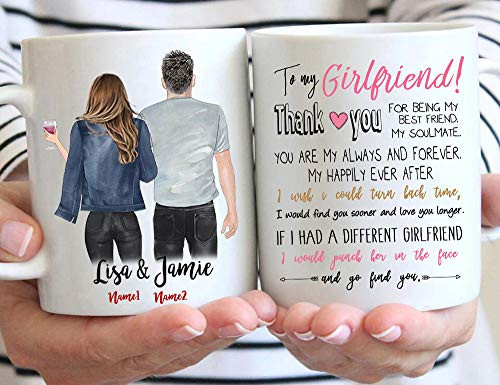 Lisa & Jamie
Name1 Name2
To my Girlfriend!
Thank you
FOR BEING MY
BEST FRIEND.
MY SOULMATE.
YOU ARE MY ALWAYS AND FOREVER.
MY HAPPILY EVER AFTER
I wish i could turn back time,
I would find you sooner and love you longer.
IF I HAD A DIFFERENT GIRLFRIEND
I would punch her in the face
and go find you.